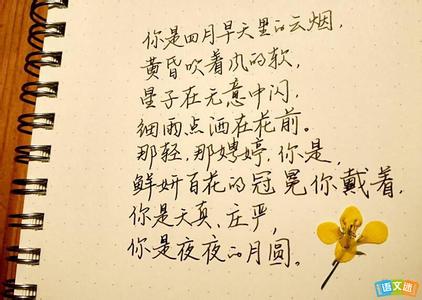 你是四月早天里的云烟,
黄昏吹着风的软,
星子在无意中闪,
细雨点洒在花前。
那轻,那娉婷,你是,
鲜妍百花的冠冕你戴着,
你是天真、庄严,
你是夜夜的月圆。
语文迷